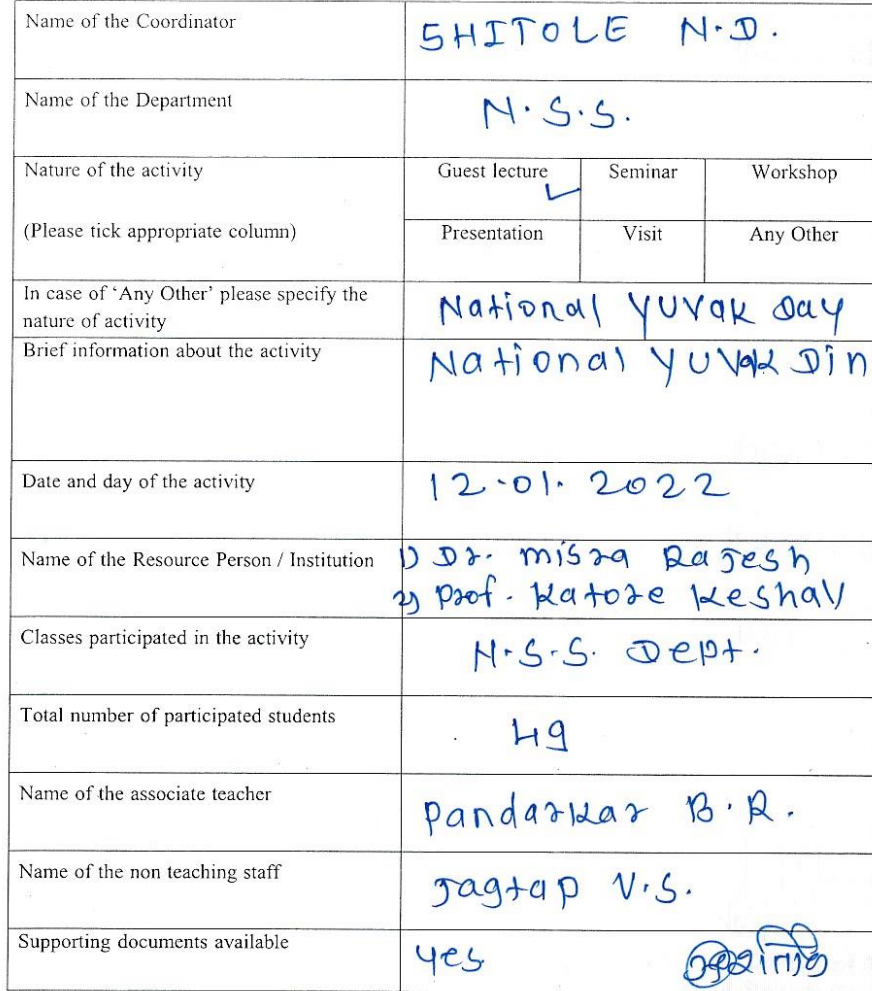 Name of the Coordinator SHITOLE N.D.
Name of the Department N.S.S.
Nature of the activity Guest lecture ✓ Seminar Workshop
(Please tick appropriate column) Presentation Visit Any Other
In case of ‘Any Other’ please specify the
nature of activity National YUVak Day
Brief information about the activity National YUVak Din
Date and day of the activity 12.01.2022
Name of the Resource Person / Institution 1) Dr. Misra Rajesh
2) Prof. Katore Keshav
Classes participated in the activity N.S.S. Dept.
Total number of participated students 49
Name of the associate teacher Pandarkar B.R.
Name of the non teaching staff Jagtap V.S.
Supporting documents available Yes